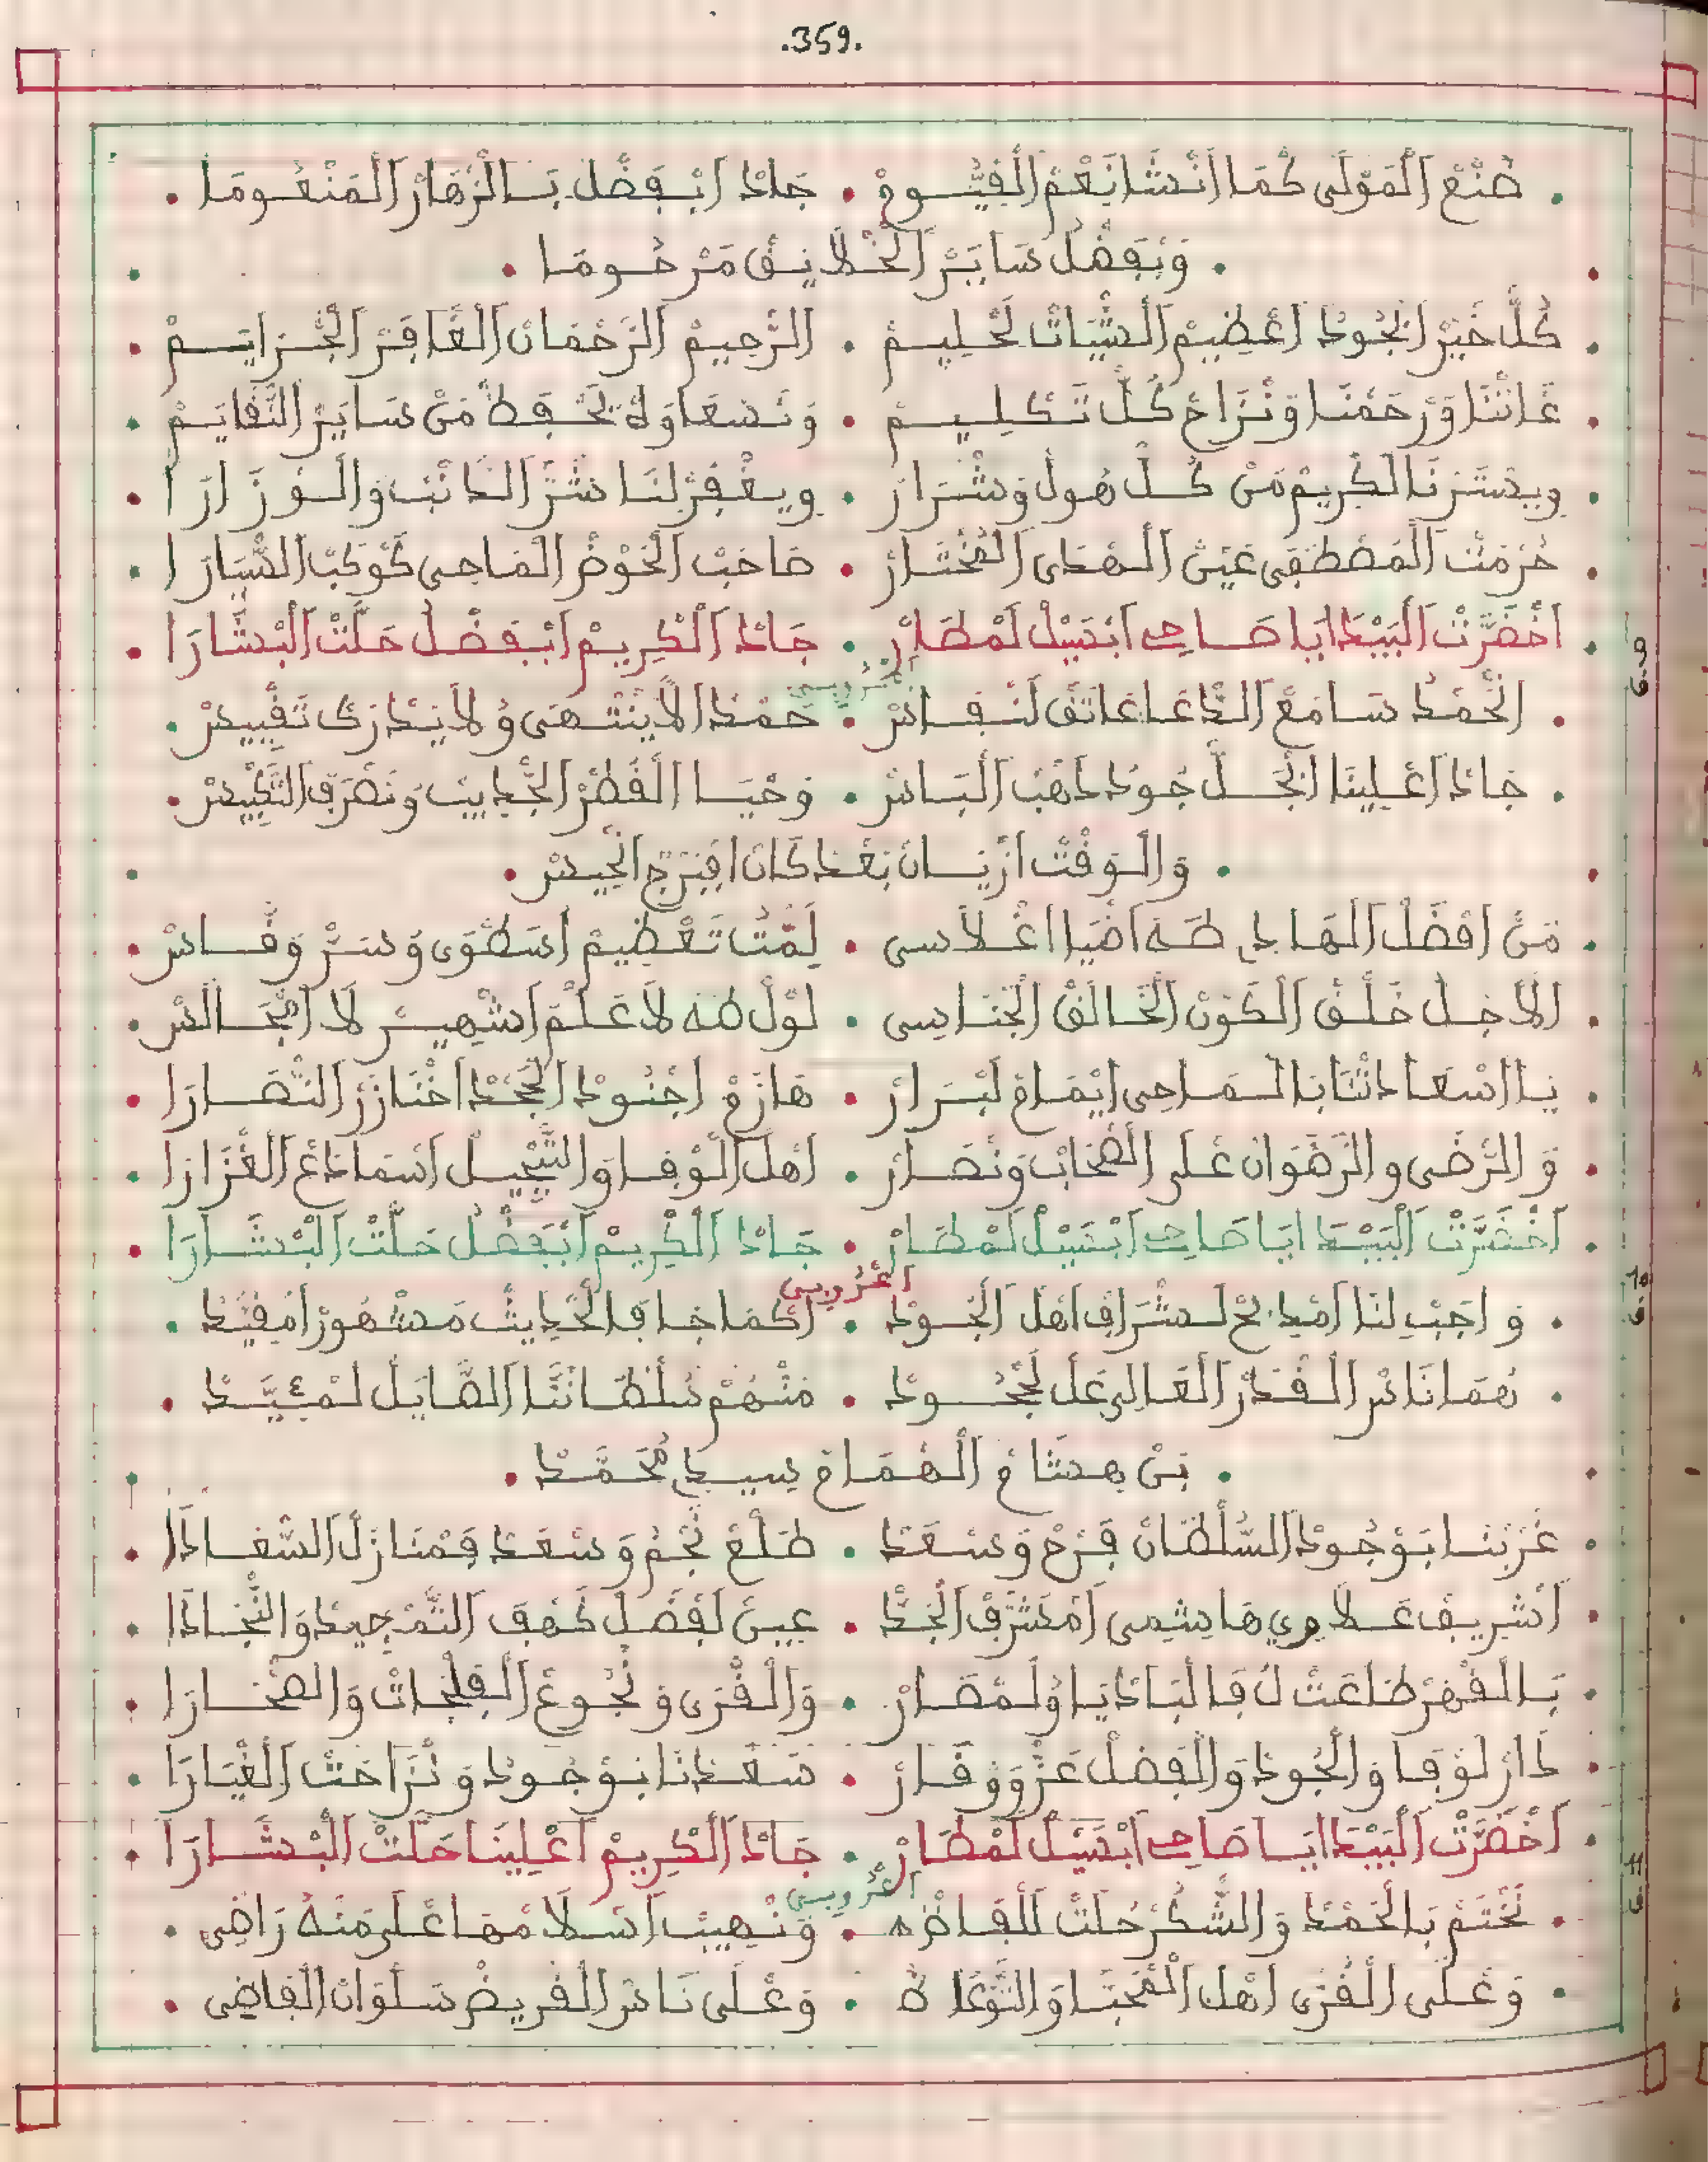 .359.
صُنْعْ اَلْمَوْلَى كْمَا اَنْشَا نِعْمْ اَلْفَيُّومْ . جَادْ ابْفَضْلْ بَالزْهَارْ الْمَنْعُومَا .
. وَبْفَضْلْ سَايَرْ الْخْلَايِقْ مَرْحُومَا .
كُلّْ خَيْرْ الْجُودْ اعْظِيمْ الشَّانْ لَحْلِيمْ . الرّْحِيمْ الرَّحْمَانْ الْغَافَرْ الْجْرَايَمْ .
غَاتْنَا وَرْحَمْنَا وَنْزَاحْ كُلّْ تَكْلِيمْ . وَنْسَعَاوْهْ يَحْفَظْ مَنْ سَايَرْ النّْقَايَمْ .
ويسْتَرْنَا الْكْرِيمْ مَنْ كُلّْ هُولْ وَشْرَارْ . ويغْفَرْ لنَا شَرّْ الدَّانْبْ والْوْزَارَا .
حُرْمَتْ الْمَصْطْفَى عَيْنْ الْهْدَى الْمُخْتَارْ . صَاحَبْ الْحَوْضْ الْمَاحِي كَوْكَبْ السّْيَارَا .
اَخْضَرَّتْ اَلْبَيْدَا ايَا صَاحِ ابْسَيْلْ لَمْطَارْ . جَادْ اَلْكْرِيمْ ابْفَضْلْ حَلَّتْ الْبْشَارَا .
اعْرُوبِي
الْحَمْدْ سَامَعْ الدّْعَا عَاتَقْ لَنْفَاسْ . حَمْدْ الَا يَنْتْهَى وُلَا يَدْرَكْ تَقْيِيسْ .
جَادْ اعْلِينَا الْجَلّْ جُودْ دَهْبْ الْبَاسْ . وَحْيَا الْقْطَرْ الْجْدِيبْ وَنْصَرَفْ التَّنْكِيسْ .
. وَالْوَقْتْ ازْيَانْ بَعْدْ كَانْ افِيَرْجْ الْحِيسْ .
مَنْ افْضَلْ الْهَادِي طَهَ اضْيَا اغْلَاسِي . لِمْتْ تَعْظِيمْ اسَطْوَى وَسَرّْ وَقَّاسْ .
الَاجِلْ خَلْقْ الْكَوْنْ الْخَالَقْ الْجْنَاسِي . لَوْلْ طَهَ لَا عَلْمْ اشْهِيرْ لَا امْجَالَسْ .
يَا اسْعَادَتْنَا بَالْمَاحِي ايْمَامْ لَبْرَارْ . هَازَمْ اجْنُودْ الْجَحْدْ اخْنَازَرْ النّْصَارَا .
وَالرّْضَى والرَّضْوَانْ عْلَى الصّْحَابْ وَنْصَارْ . اهْلْ الْوْفَا وَالتَّبْجِيلْ اسْمَادَعْ الْغْزَارَا .
اَخْضَرَّتْ الْبَيْدَا ايَا صَاحِ ابْسَيْلْ لَمْطَارْ . جَادْ اَلْكْرِيمْ ابْفَضْلْ حَلَّتْ الْبْشَارَا .
اعْرُوبِي
وَاجَبْ لنَا امْدِيحْ لَشْرَافْ اهْلْ الْجُودْ . اكْمَا جَا فَالْحْدِيثْ مَشْهُورْ امْفِيَّدْ .
هُمَا نَاسْ الْقْدَرْ الْعَالِي عَلْ لَجْحُودْ . مَنْهُمْ سُلْطَانَّا الصَّايَلْ لَمْئَيَّدْ .
. بَنْ هِشَامْ الْهُمَامْ سِيدِي مُحَمَّدْ .
غَرْبْنَا بَوْجُودْ السُّلْطَانْ فَرْحْ وَسْعَدْ . طَلْعْ نَجْمُ وَسْعَدْ فَمْنَازَلْ السّْعَادَا .
اَشْرِيفْ عَلَاوِي هَاشِمِي امْشَرَّفْ الْجَدّْ . عِينْ لَفْضَلْ كْهَفْ التَّمْجِيدْ وَالنّْجَادَا .
بَالْقْهَرْ طَاعَتْ لُ فَالْبَادْيَا وُلَمْصَارْ . وَالْقْرَى وَنْجُوعْ الْفَلْجَاتْ وَالصّْحَارَا .
دَارْ لَوْفَا وَالْجُودْ وَالْفَضْلْ عَزّْ وَوْقَارْ . سَعْدْنَا بَوْجُودْ وَنْزَاحَتْ الْغْيَارَا .
اَخْضَرَّتْ اَلْبَيْدَا ايَا صَاحِ ابْسَيْلْ لَمْطَارْ . جَادْ اَلْكْرِيمْ اعْلِينَا حَلَّتْ الْبْشَارَا .
اعْرُوبِي
نَخْتَمْ بَالْحَمْدْ وَالشُّكْرْ حُلَّتْ لَلْفَاضَهْ . وَنْهِيبْ اسْلَامْهَا عْلَى مَنْهُ رَاضِي .
وَعْلَى الْقْرَى اهْلْ الْمْحَبَّا وَالتَّوْعَادْ . وَعْلَى نَاسْ الْقْرِيضْ سَلْوَانْ الْقَاضِي .